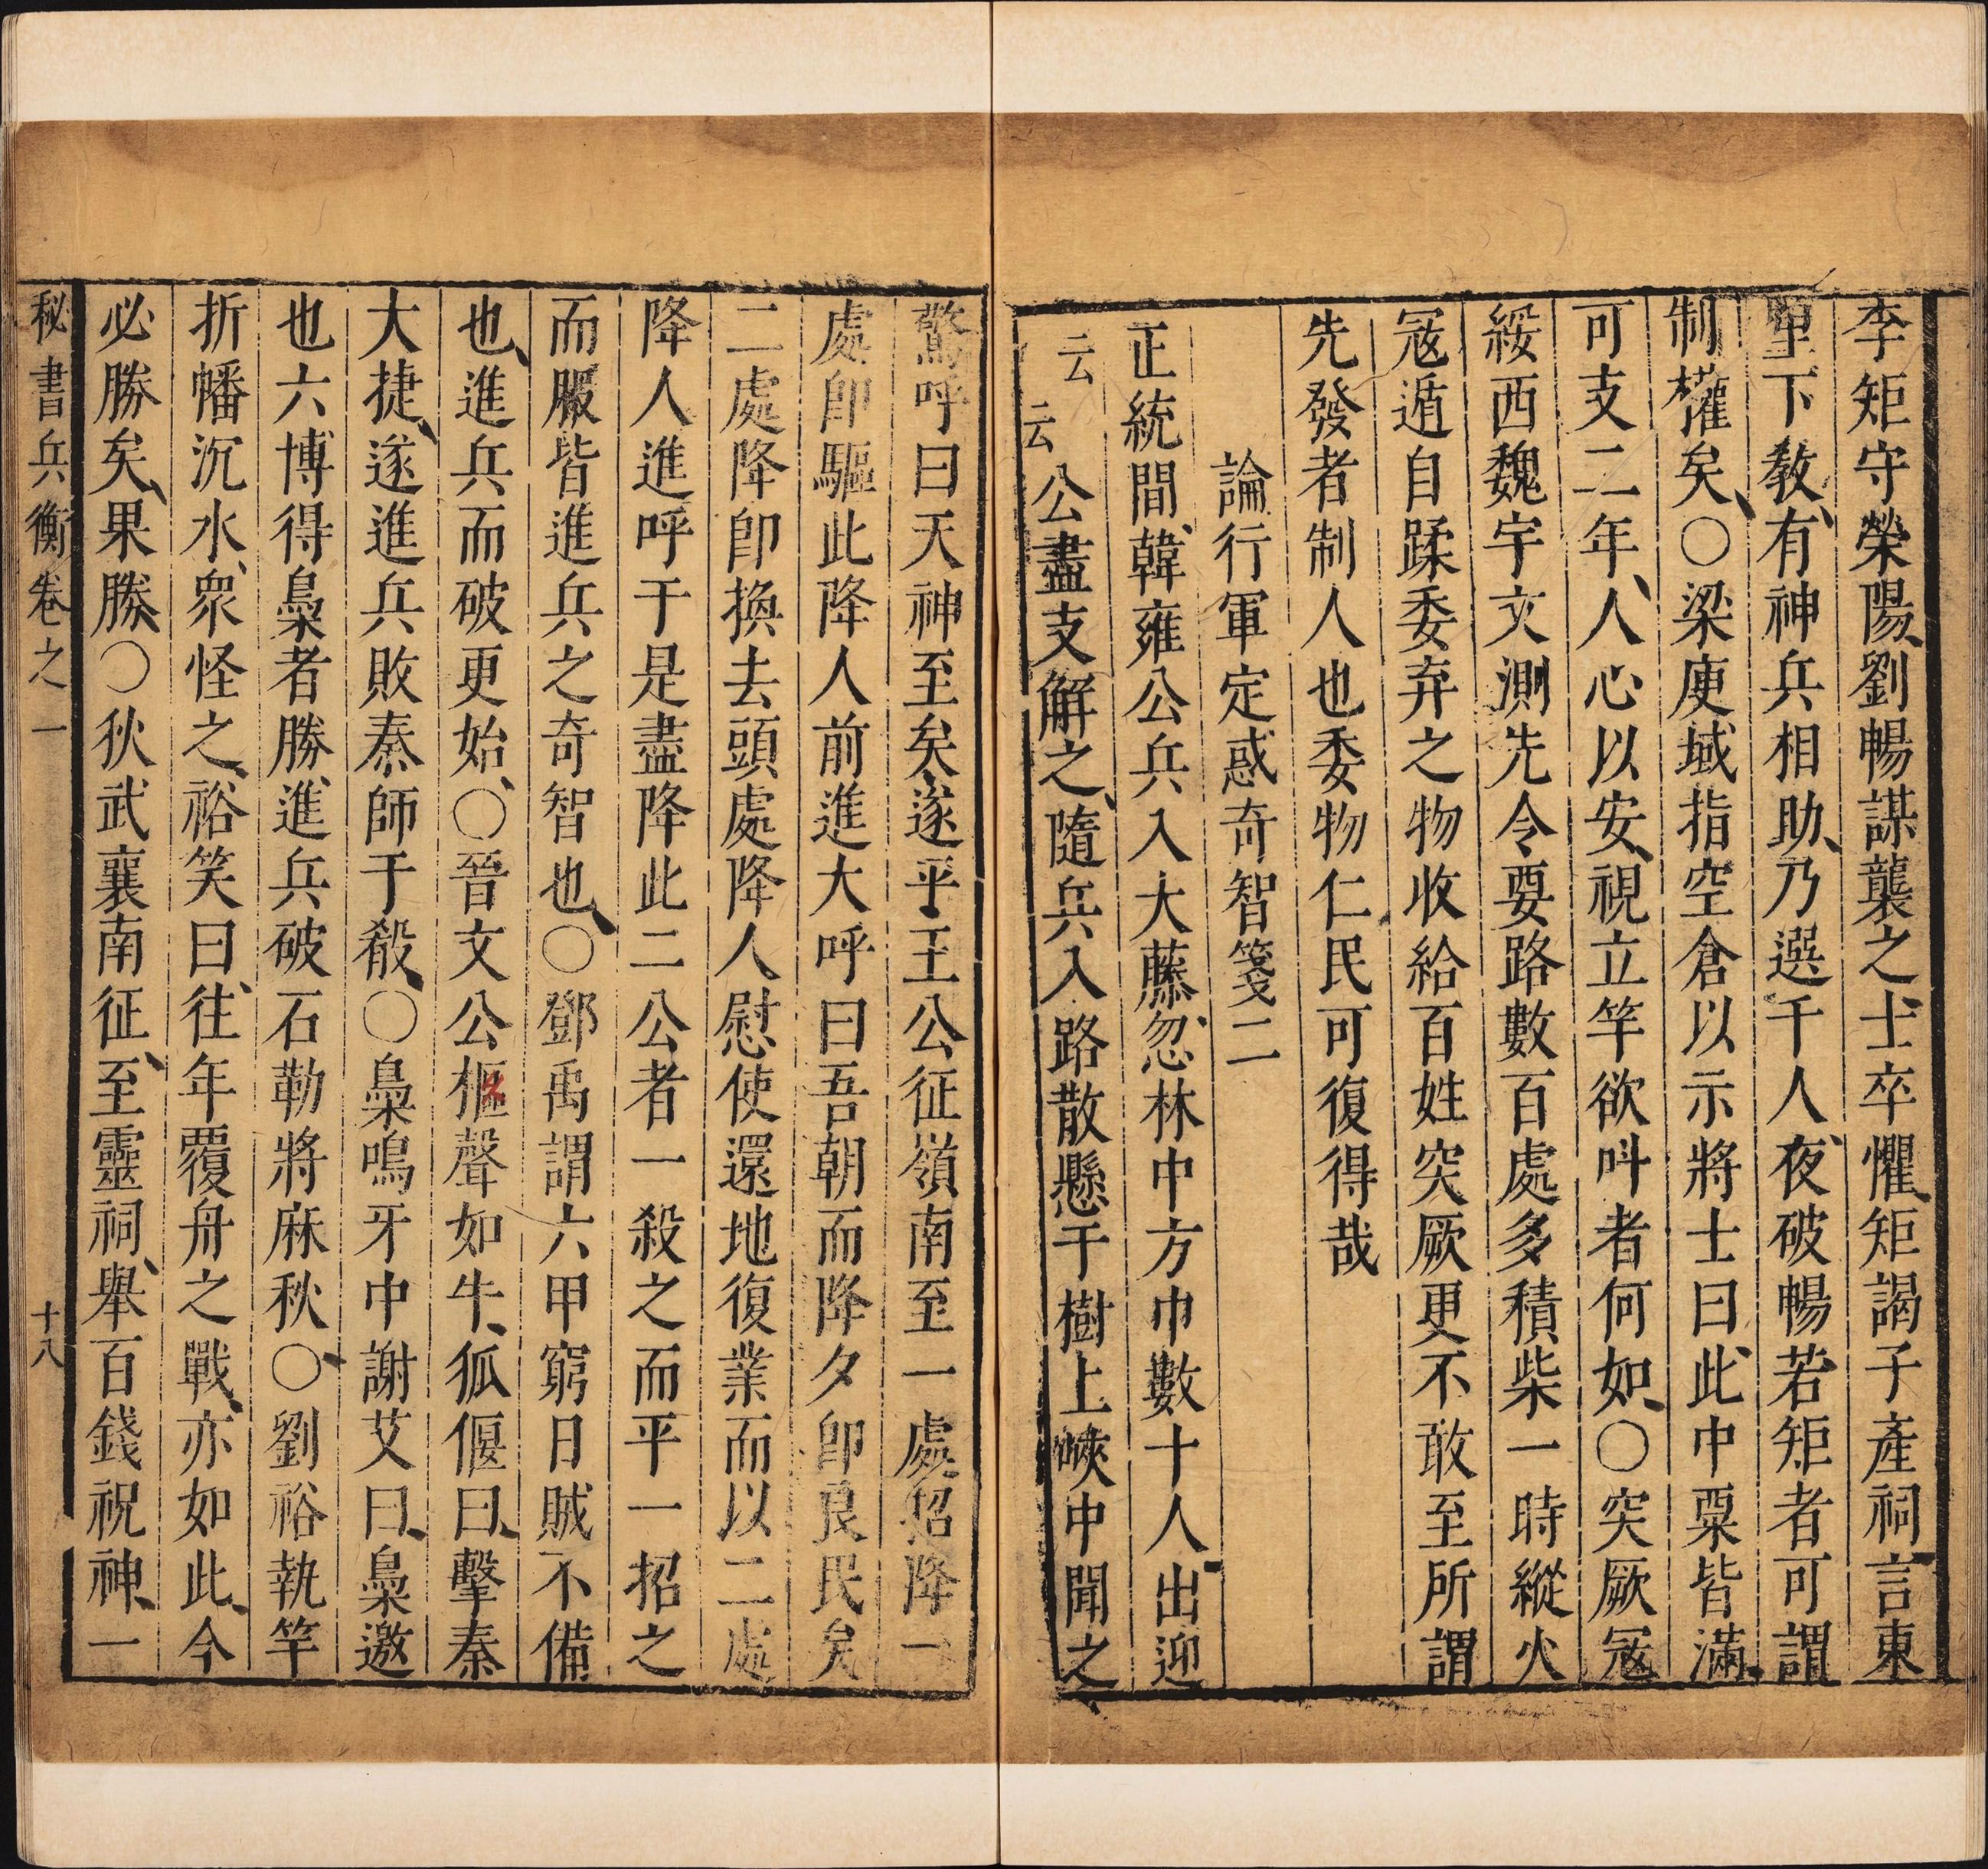 李矩守滎陽劉暢謀襲之士卒懼矩謁子產祠言東
里下教有神兵相助乃選千人夜破暢若矩者可謂
制權矣○梁庾域指空倉以示將士曰此中粟皆滿
可支二年人心以安視立竿欲呌者何如○突厥冦
綏西魏宇文測先令要路數百處多積柴一時縱火
冦遁自蹂委弃之物收給百姓突厥更不敢至所謂
先發者制人也委物仁民可復得哉
論行軍定惑奇智箋二
正統間韓雍公兵入大藤忽林中方巾數十人出迎
云云公盡支解之隨兵入路散懸于樹上峽中聞之
驚呼曰天神至矣遂平王公征嶺南至一處招降一
處卽驅此降人前進大呼曰吾朝而降夕卽良民矣
二處降卽換去頭處降人慰使還地復業而以二處
降人進呼于是盡降此二公者一殺之而平一招之
而服皆進兵之奇智也○鄧禹謂六甲窮日賊不備
也進兵而破更始○晉文公柩聲如牛狐偃曰擊秦
大捷遂進兵敗秦師于殽○梟鳴牙中謝艾曰梟邀
也六博得梟者勝進兵破石勒將麻秋○劉裕執竿
折幡沉水眾怪之裕笑曰往年覆舟之戰亦如此今
必勝矣果勝○狄武襄南征至靈祠舉百錢祝神一
秘書兵衡卷之一 十八